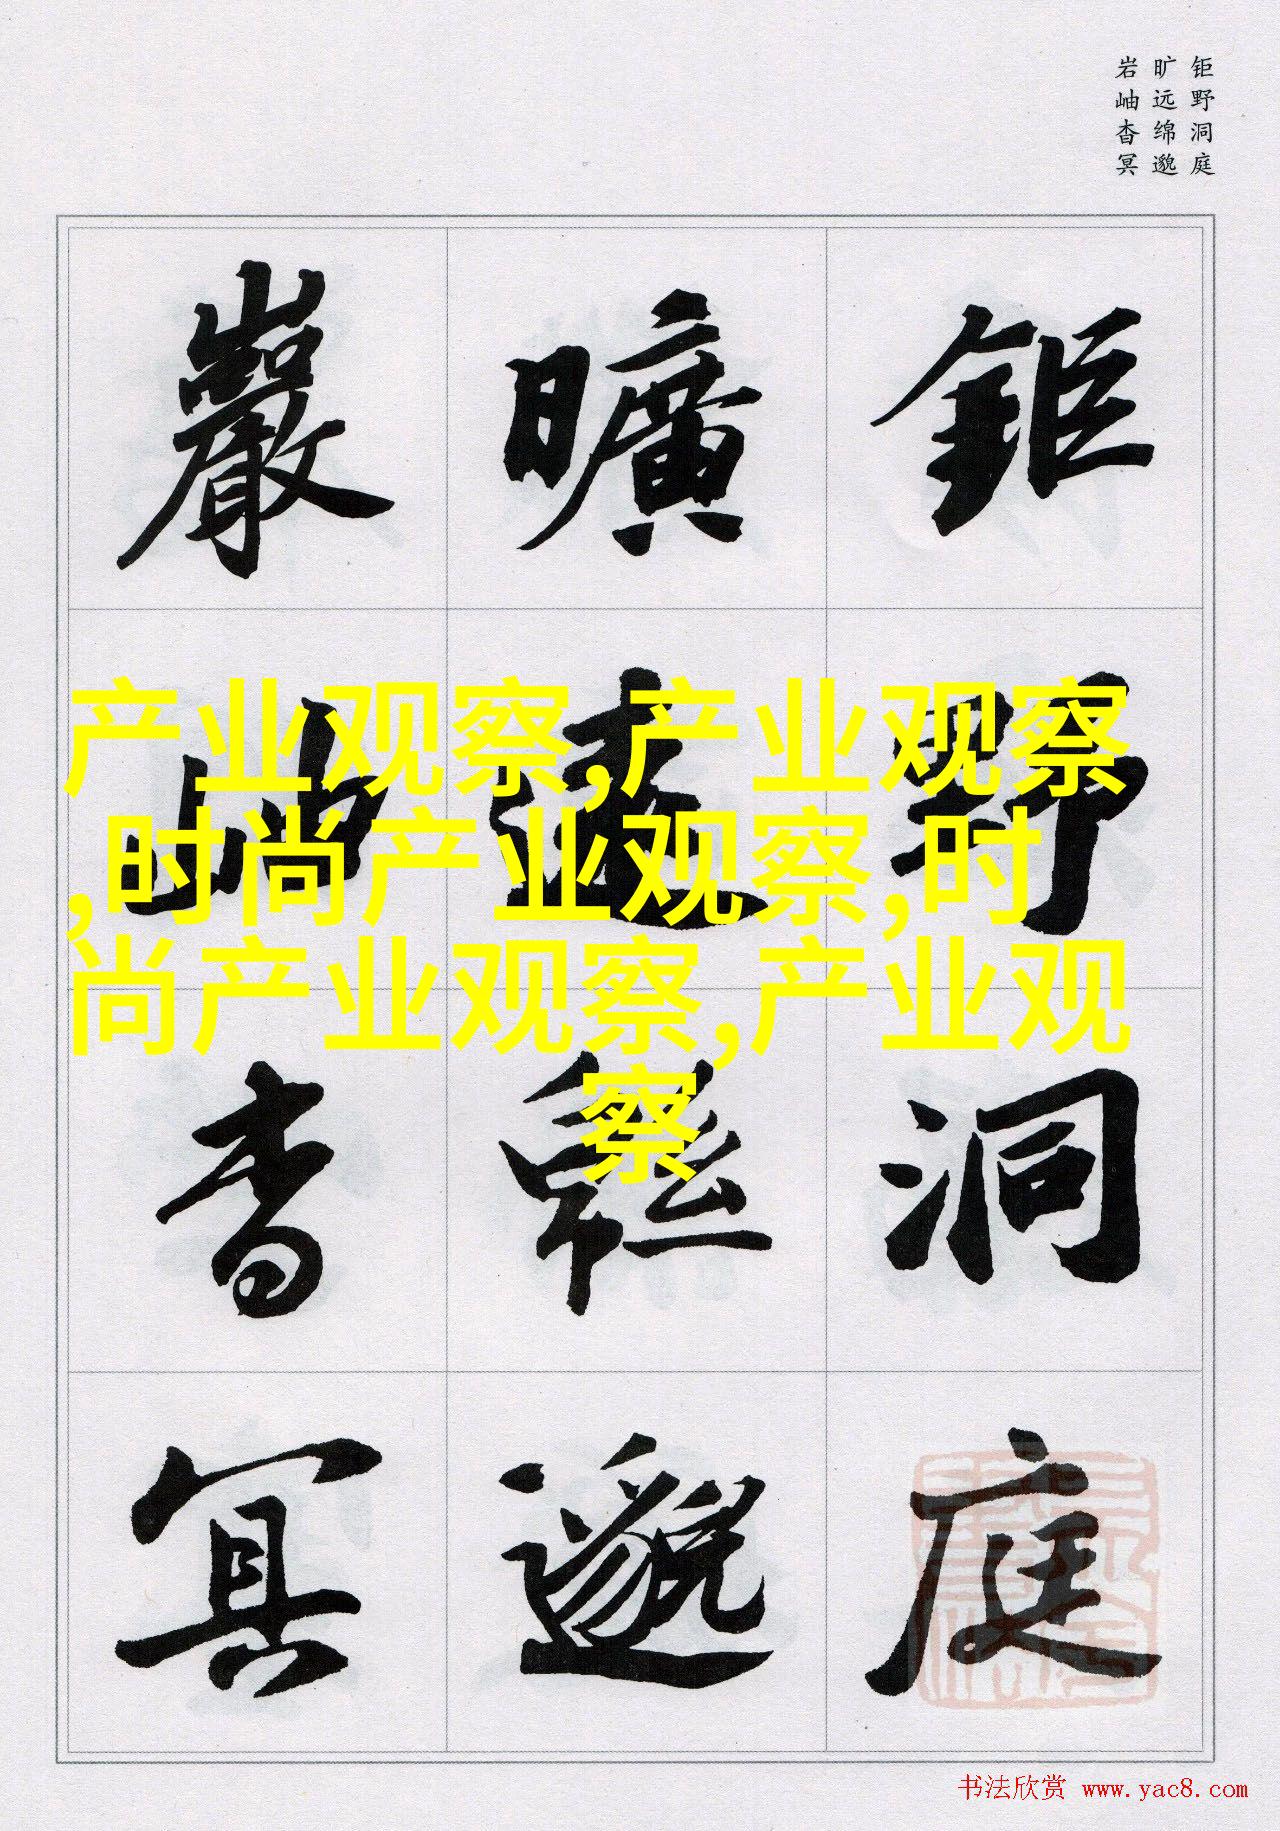 钜野洞庭
旷远绵邈
岩岫杳冥
鉅野洞庭
曠遠緜邈
巖岫杳冥
产业观察,产业观察
,时尚产业观察,时
尚产业观察,产业观
察
书法欣赏 www.yac8.com